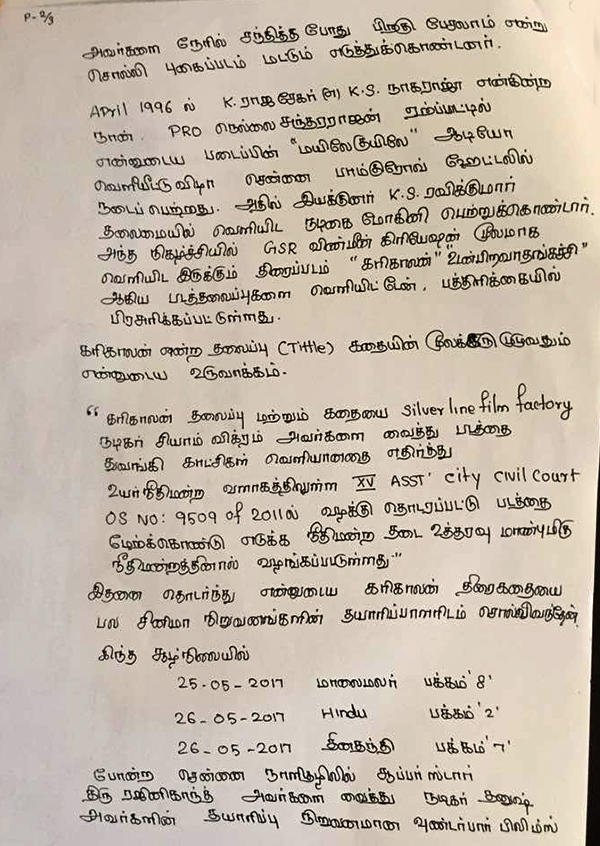 P-2/3
அவர்களை நேரில் சந்தித்த போது மீண்டும் பேசலாம் என்று
சொல்லி புகைப்படம் மட்டும் எடுத்துக்கொண்டனர்.
April 1996 ல் K.ராஜசேகர் (எ) K.S. நாகராஜா என்கின்ற
நான். PRO நெல்லை சுந்தரராஜன் ஏற்பாட்டில்
என்னுடைய படைப்பின் "மயிலே குயிலே" ஆடியோ
வெளியீட்டு விழா சென்னை பாம்குரோவ் ஹோட்டலில்
நடைப் பெற்றது. அதில் இயக்குனர் K.S. ரவிக்குமார்
தலைமையில் வெளியிட நடிகை மோகினி பெற்றுக்கொண்டார்.
அந்த நிகழ்ச்சியில் GSR விண்மீன் கிரியேஷன் மூலமாக
வெளியிட இருக்கும் திரைப்படம் "கரிகாலன்" "உன்பிறவாதங்கச்சி"
ஆகிய படத்தலைப்புகளை வெளியிட்டேன். பத்திரிக்கையில்
பிரசுரிக்கப்பட்டுள்ளது.
கரிகாலன் என்ற தலைப்பு (Tittle) கதையின் மூலக்கரு முழுவதும்
என்னுடைய உருவாக்கம்.
"கரிகாலன் தலைப்பு மற்றும் கதையை Silver line film factory
நடிகர் சியாம் விக்ரம் அவர்களை வைத்து படத்தை
துவங்கி காட்சிகள் வெளியானதை எதிர்த்து
உயர்நீதிமன்ற வளாகத்திலுள்ள XV ASST' City Civil Court
OS NO: 9509 of 2011ல் வழக்கு தொடரப்பட்டு படத்தை
மேற்க்கொண்டு எடுக்க நீதிமன்ற தடை உத்தரவு மாண்புமிகு
நீதிமன்றத்தினால் வழங்கப்பட்டுள்ளது"
இதனை தொடர்ந்து என்னுடைய கரிகாலன் திரைகதையை
பல சினிமா நிறுவனங்களின் தயாரிப்பாளரிடம் சொல்லிவந்தேன்.
இந்த சூழ்நிலையில்
25-05-2017 மாலைமலர் பக்கம் '8'
26-05-2017 Hindu பக்கம் '2'
26-05-2017 தினதந்தி பக்கம் '7'
போன்ற சென்னை நாளிதழிலில் சூப்பர் ஸ்டார்
திரு ரஜினிகாந்த் அவர்களை வைத்து நடிகர் தனுஷ்
அவர்களின் தயாரிப்பு நிறுவனமான வுண்டர்பார் பிலிம்ஸ்